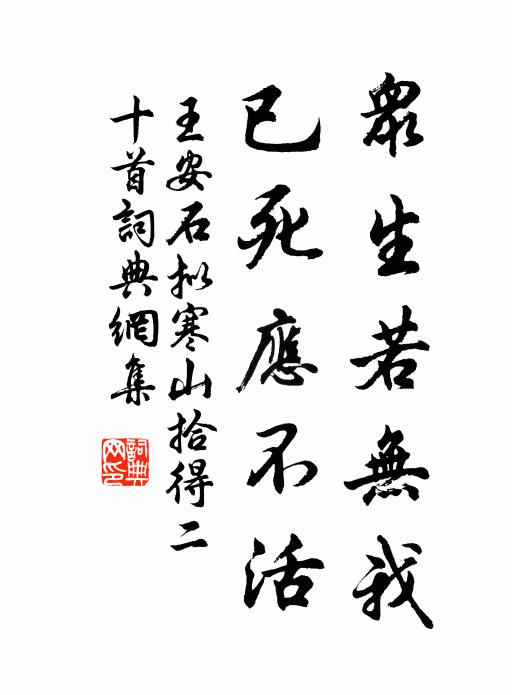 眾生若無我
已死應不活
王安石拟寒山拾得二
十首詞典網集
詞典
网印